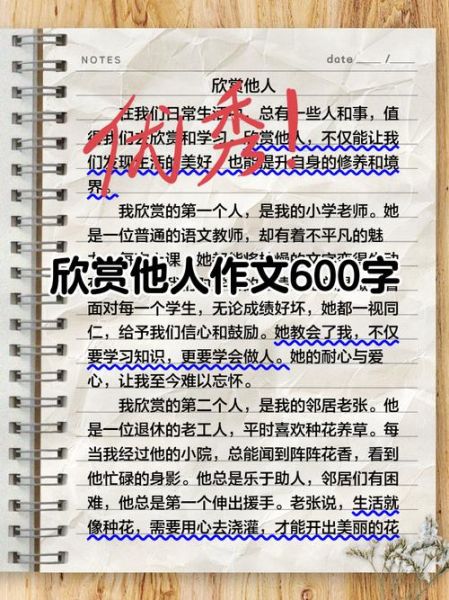 NOTES
date / 
欣赏他人
在我们日常生活，总有一些人和事，值
得我们去欣赏和学习。欣赏他人，不仅能让我
们发现生活的美好，也能提升自身的修养和境
界。
优秀！
我欣赏的第一个人，是我的小学老师。她
是一位普通的语文教师，却有着不平凡的魅
欣赏他人作文600字
面对每一个学生，无论成绩好坏，她都一视同
仁，给予我们信心和鼓励。她教会了我，不仅
要学习知识，更要学会做人。她的耐心与爱
心，让我至今难以忘怀。
我欣赏的第二个人，是我的邻居老张。他
是一位退休的老工人，平时喜欢种花养草。每
当我经过他的小院，总能闻到阵阵花香，看到
他忙碌的身影。他总是乐于助人，邻居们有困
难，他总是第一个伸出援手。老张说，生活就
像种花，需要用心去浇灌，才能开出美丽的花